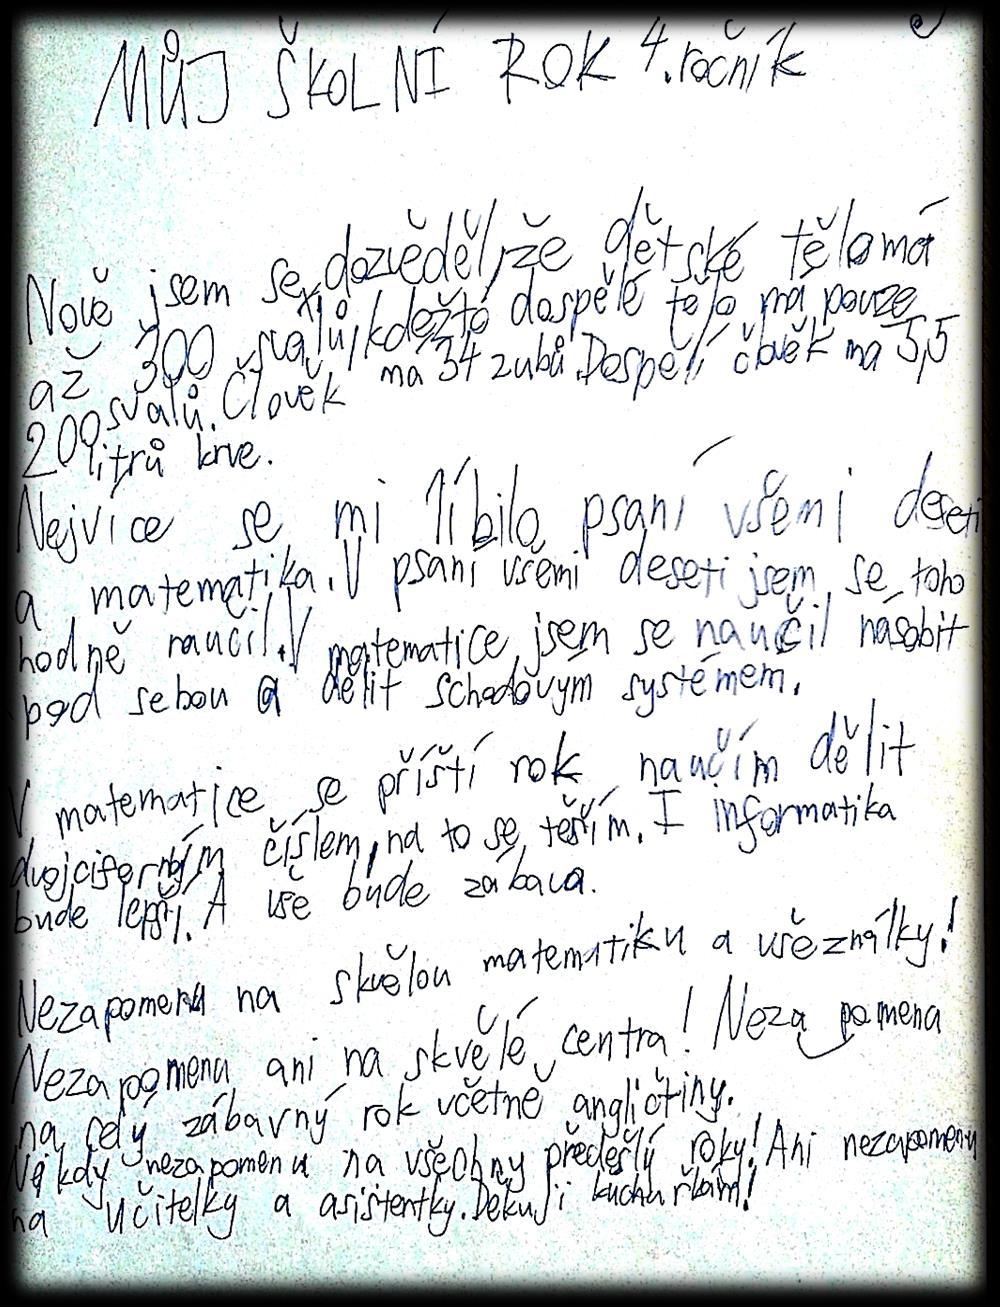 MŮJ ŠKOLNÍ ROK 4. ročník
Nově jsem se dozvěděl, že dětské tělo má
až 300 svalů, kdežto dospělé tělo má pouze
200 svalů. Člověk má 34 zubů. Dospělí člověk ma 5,5
litrů krve.
Nejvíce se mi líbilo psaní všemi deseti
a matematika. V psaní všemi deseti jsem se toho
hodně naučil. V matematice jsem se naučil násobit
pod sebou a dělit schodovým systémem.
V matematice se příští rok naučím dělit
dvojciferným číslem, na to se těším. I informatika
bude lepší. A vše bude zábava.
Nezapomenu na skvělou matematiku a všeználky!
Nezapomenu ani na skvělé centra! Nezapomena
na celý zábavný rok včetně angličtiny.
Nikdy nezapomenu na všechny předešlý roky! Ani nezapomenu
na učitelky a asistentky. Děkuji kuchařkám!